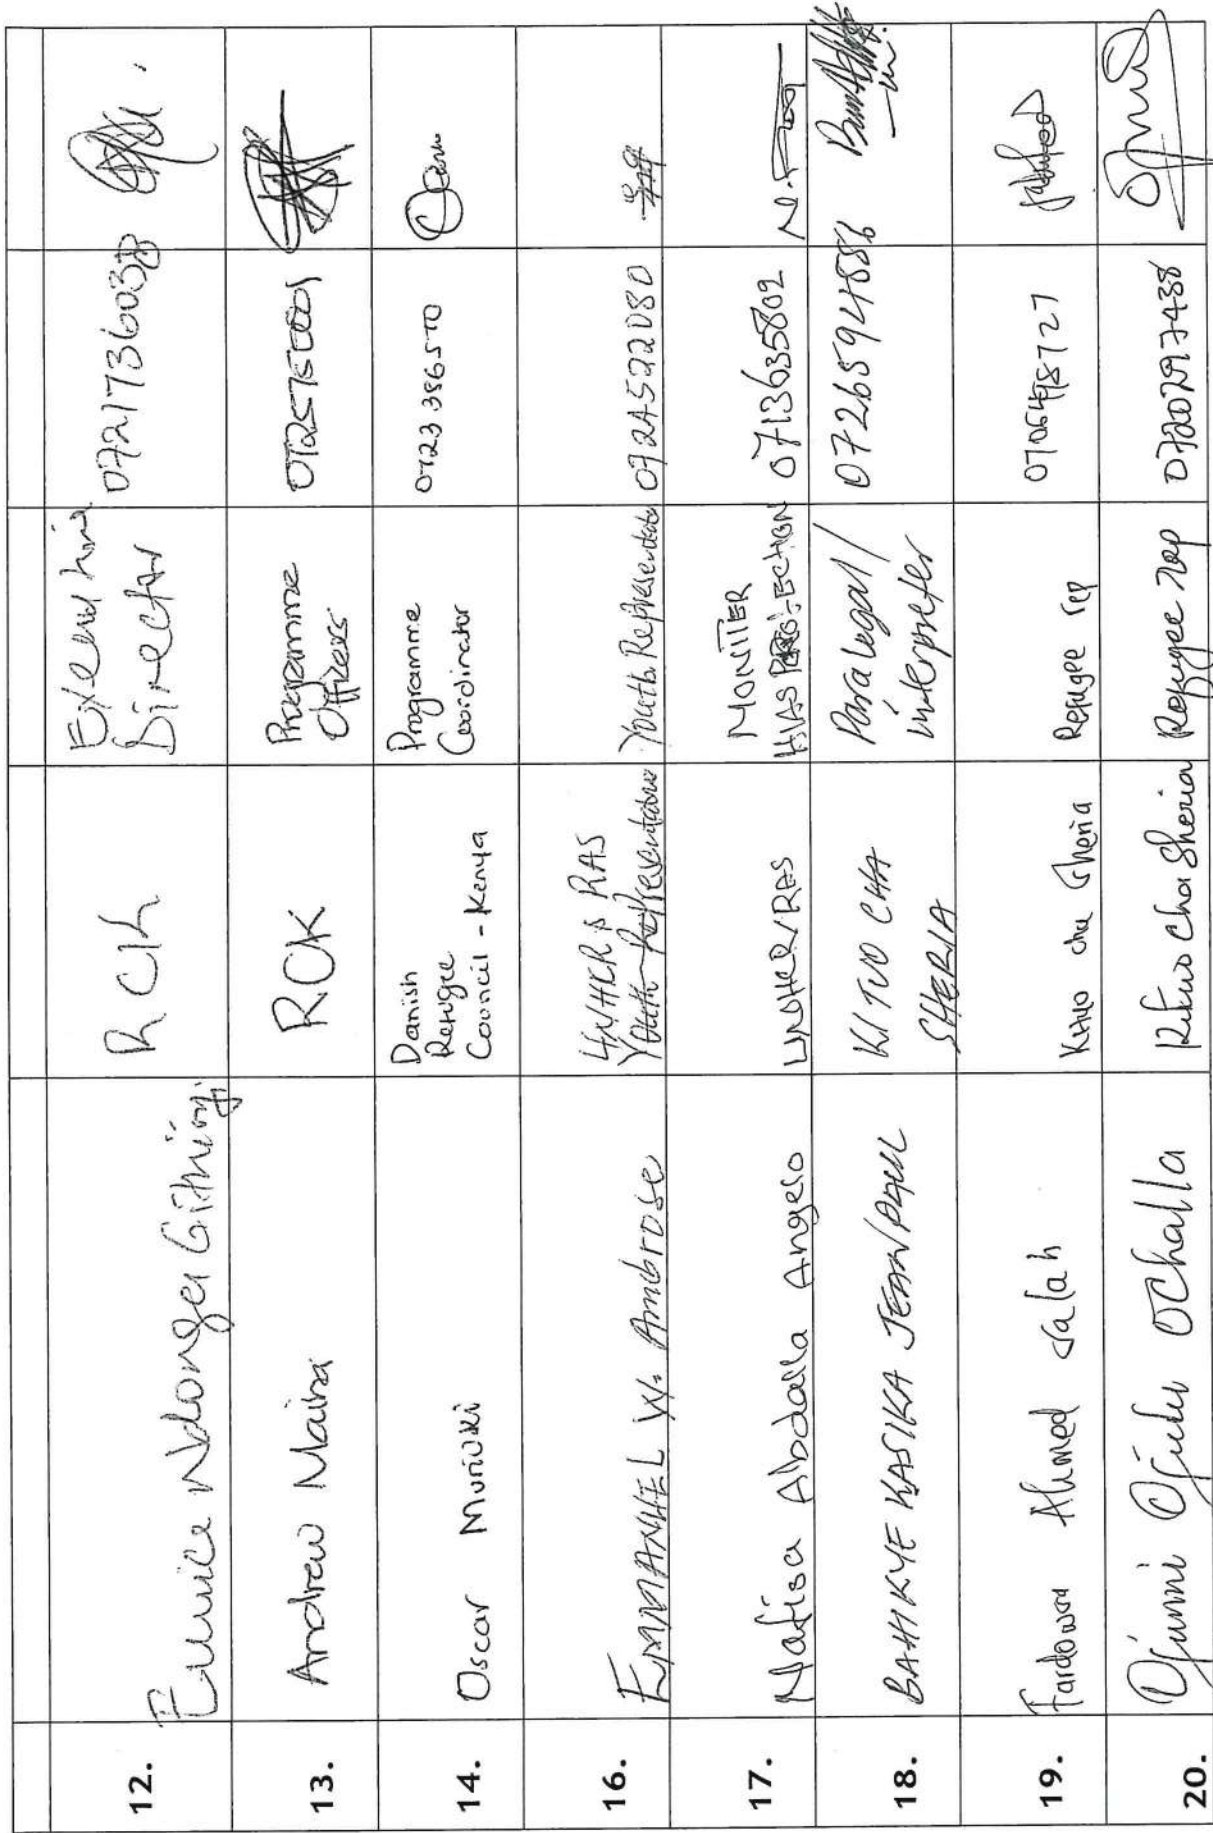 12.
Eunice Ndonga Githinji
RCK
Executive
Director
0721736038
13.
Andrew Maina
RCK
Programme
Officer
072575
14.
Oscar Muriuki
Danish
Refugee
Council - Kenya
Programme
Coordinator
0723 386570
16.
EMMANUEL W. Ambrose
UNHCR & RAS
Youth Representative
Youth Representative
0724522080
17.
Nafisa Abdalla Angelo
UNHCR/RAS
MONITER
HIAS PROTECTION
0713635802
N.
18.
BAHIKYE KASIKA JEAN PAUL
KITUO CHA
SHERIA
Paralegal /
interpreter
0726594886
19.
Fardowsa Ahmed Salah
Kituo cha Sheria
Refugee rep
20.
Ojunni Ojulu Ochalla
Kituo Cha Sheria
Refugee Rep